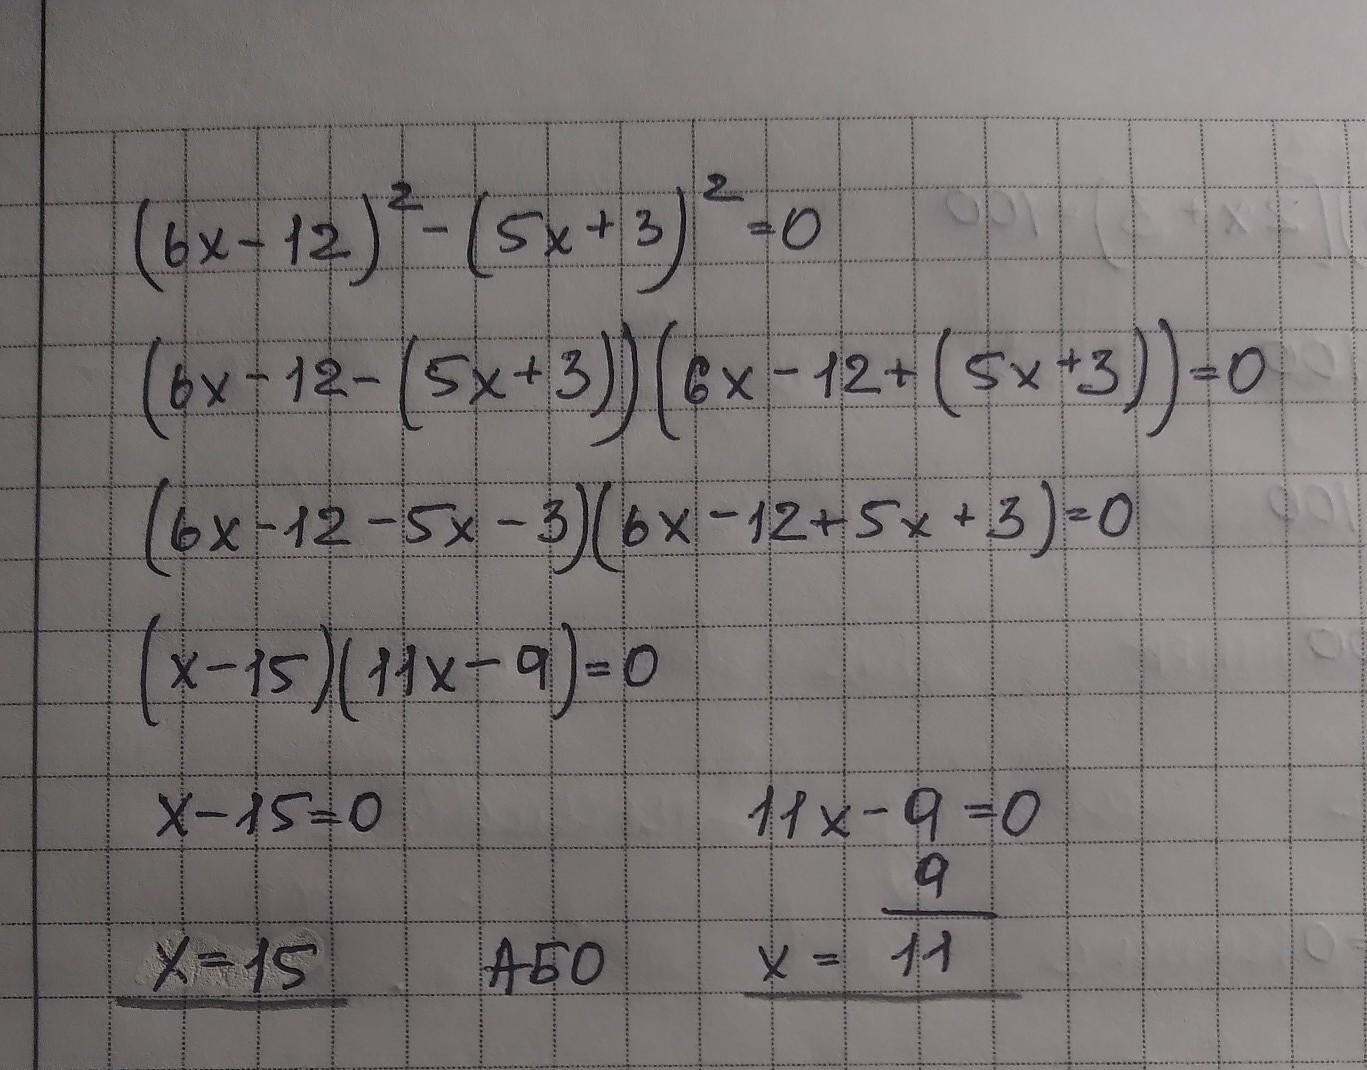 (6x-12)²-(5x+3)²=0
(6x-12-(5x+3))(6x-12+(5x+3))=0
(6x-12-5x-3)(6x-12+5x+3)=0
(x-15)(11x-9)=0
x-15=0 11x-9=0
x=15 АБО x = 9/11